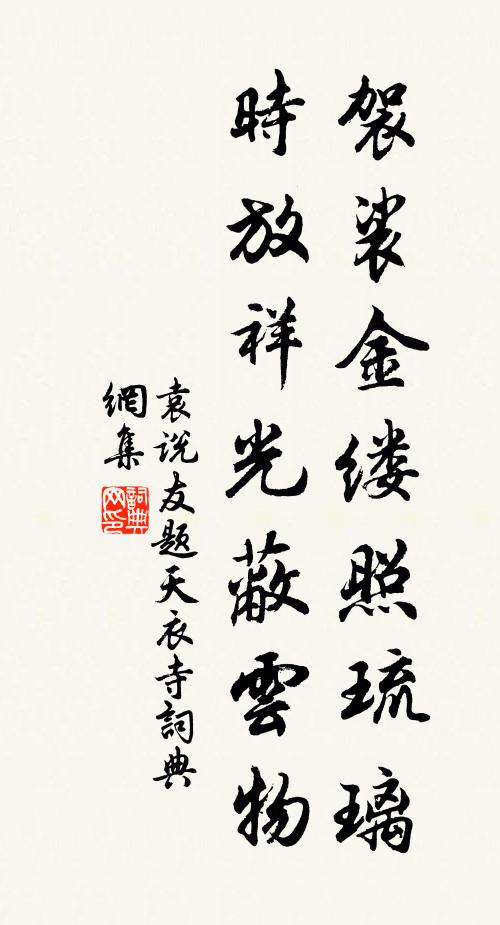 袈裟金缕照琉璃
時放祥光蔽雲物
袁说友题天衣寺詞典
網集
詞典网印